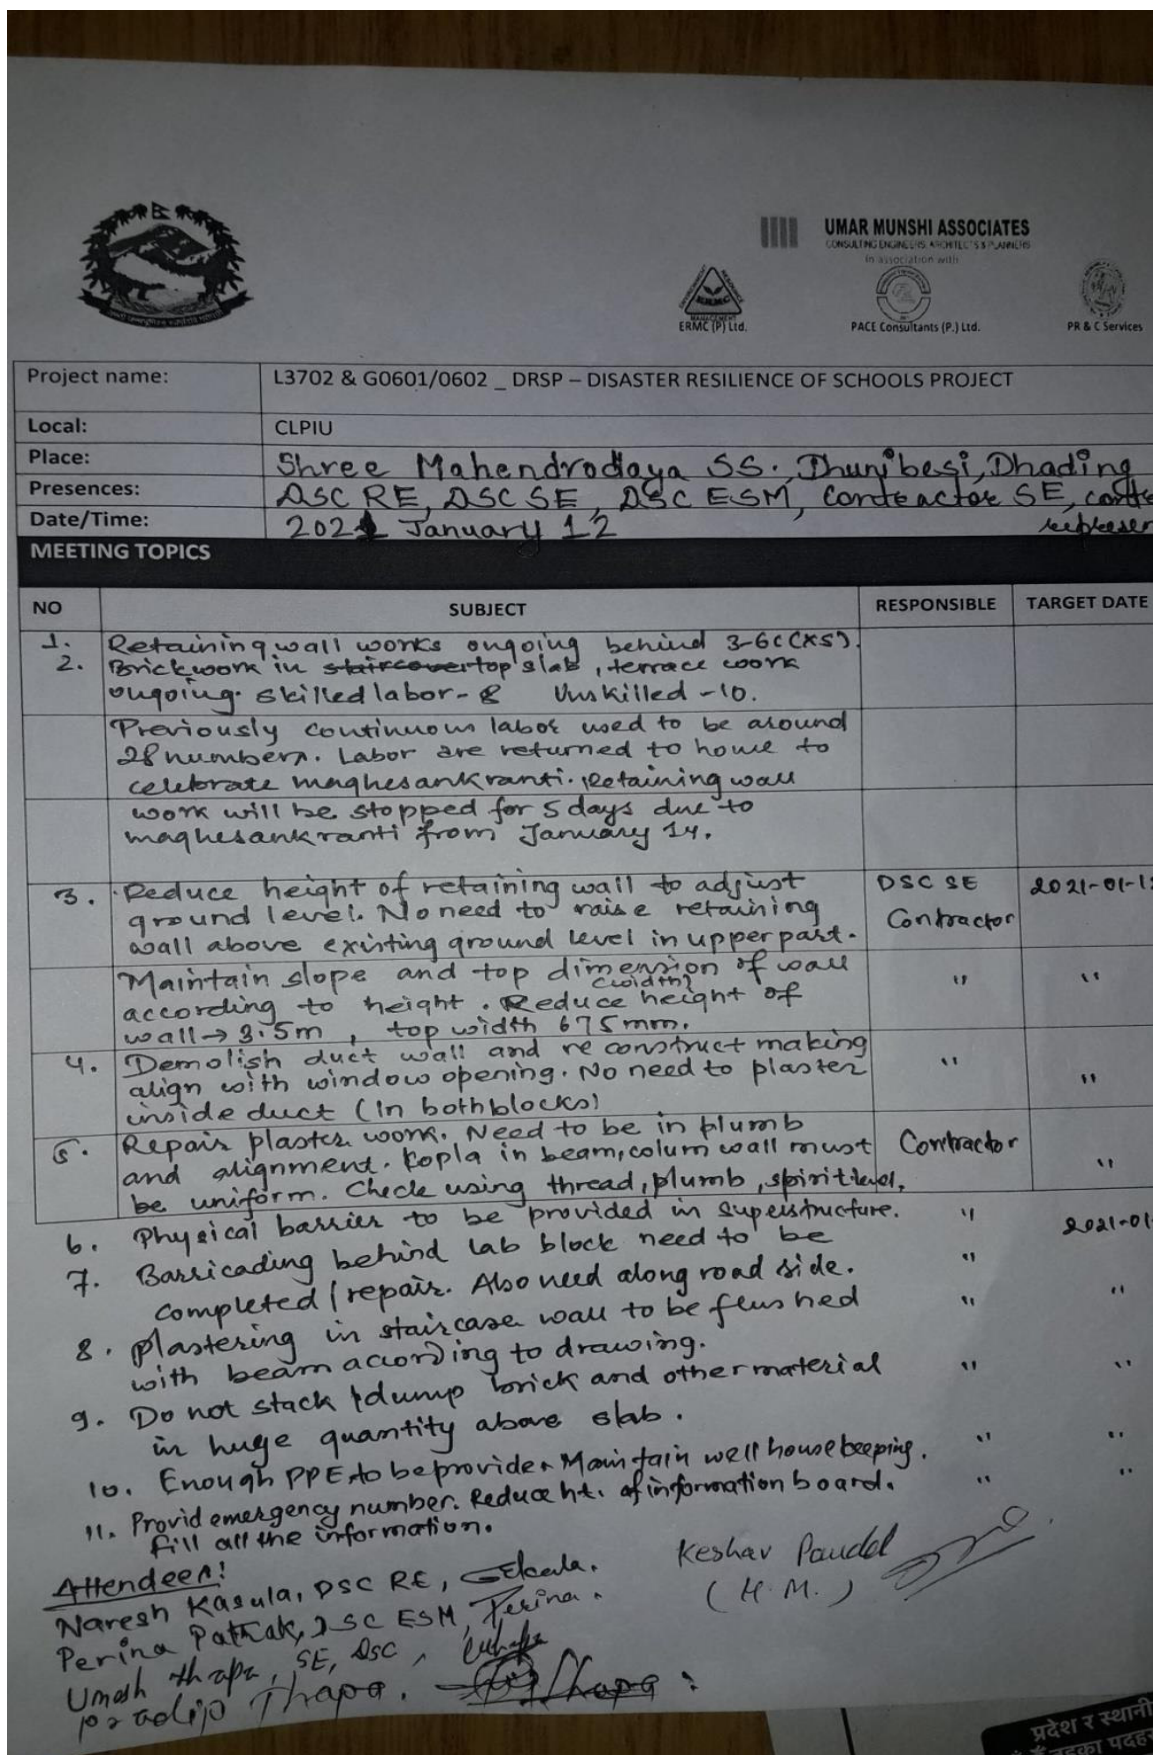 UMAR MUNSHI ASSOCIATES
CONSULTING ENGINEERS, ARCHITECTS & PLANNERS
in association with
ERMC (P) Ltd.
PACE Consultants (P.) Ltd.
PR & C Services
Project name: L3702 & G0601/0602 _ DRSP – DISASTER RESILIENCE OF SCHOOLS PROJECT
Local: CLPIU
Place: Shree Mahendrodaya SS. Dhunibesi, Dhading
Presences: DSC RE, DSC SE, DSC ESM, Conteactor SE,
Date/Time: 2021 January 12
MEETING TOPICS
NO SUBJECT RESPONSIBLE TARGET DATE
1. Retaining wall works ongoing behind 3-6C(X5).
2. Brickwork in staircover top slab, terrace work
ongoing. skilled labor - 8 Unskilled - 10.
Previously continuous labor used to be around
28 numbers. Labor are returned to home to
celebrate maghesankranti. Retaining wall
work will be stopped for 5 days due to
maghesankranti from January 14.
3. Reduce height of retaining wall to adjust DSC SE 2021-01-1
ground level. No need to raise retaining Contractor
wall above existing ground level in upper part.
Maintain slope and top dimension of wall " "
(width)
according to height. Reduce height of
wall → 3.5m, top width 675mm.
4. Demolish duct wall and re construct making " "
align with window opening. No need to plaster
inside duct (In both blocks)
5. Repair plaster work. Need to be in plumb Contractor "
and alignment. Kopla in beam, colum wall must
be uniform. Check using thread, plumb, spirit level.
6. Physical barrier to be provided in superstructure. " 2021-01-
7. Barricading behind lab block need to be "
completed / repair. Also need along road side.
8. Plastering in staircase wall to be flushed " "
with beam acording to drawing.
9. Do not stack / dump brick and other material " "
in huge quantity above slab.
10. Enough PPE to be provide. Maintain well housekeeping. " "
11. Provid emergency number. Reduce ht. of information board. " "
fill all the information.
Attendees:
Naresh Kasula, DSC RE,
Perina Pathak, DSC ESM, Perina.
Umesh thapa, SE, DSC,
Pradip Thapa. Thapa
Keshav Paudel
(H.M.)
प्रदेश र स्थानी